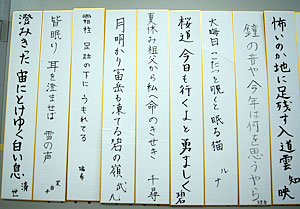 怖いのか地に足残す入道雲 知映
鐘の音や今年は何を思うやら
大晦日こたつと脱ぐと眠る猫 ルナ
桜道今日も行くよと勇ましく 碧
夏休み祖父から私へ命のきせき 千尋
月明かり笛岳も凍てる岩の嶺 武九
霜柱足跡の下にうもれてる
皆眠り耳を澄ませば雪の声
澄みきった宙にとけゆく白い息 清世